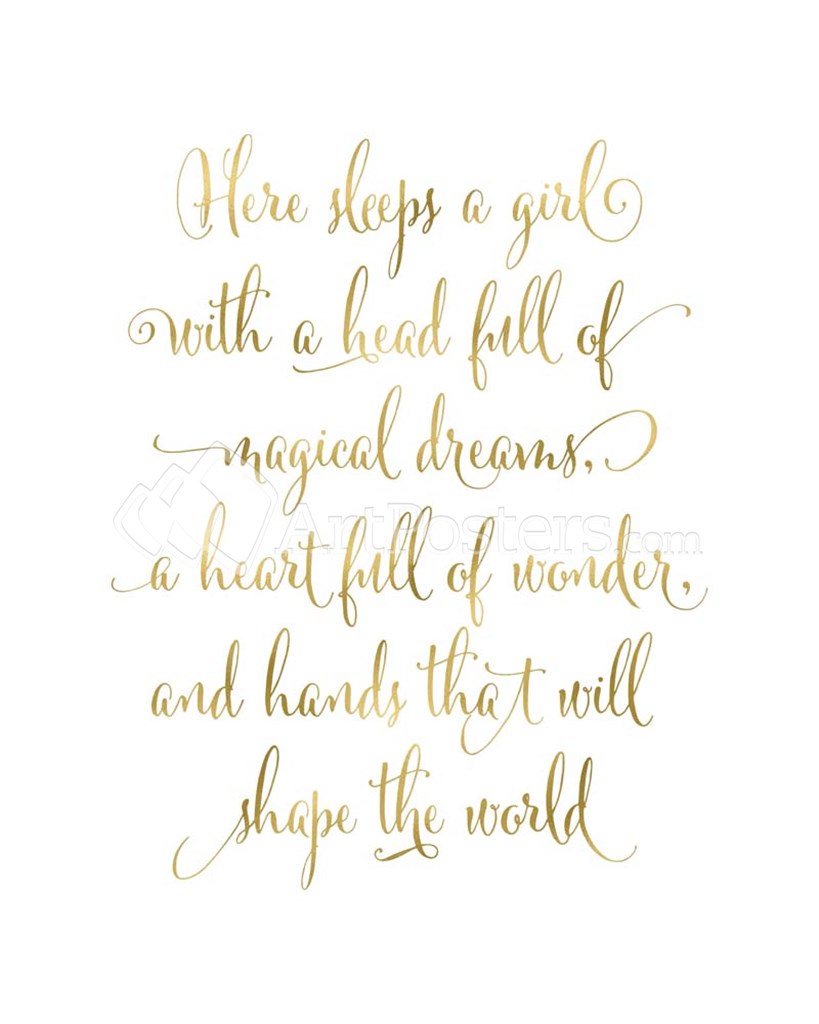 Here sleeps a girl
with a head full of
magical dreams,
ArtPosters.com
a heart full of wonder,
and hands that will
shape the world